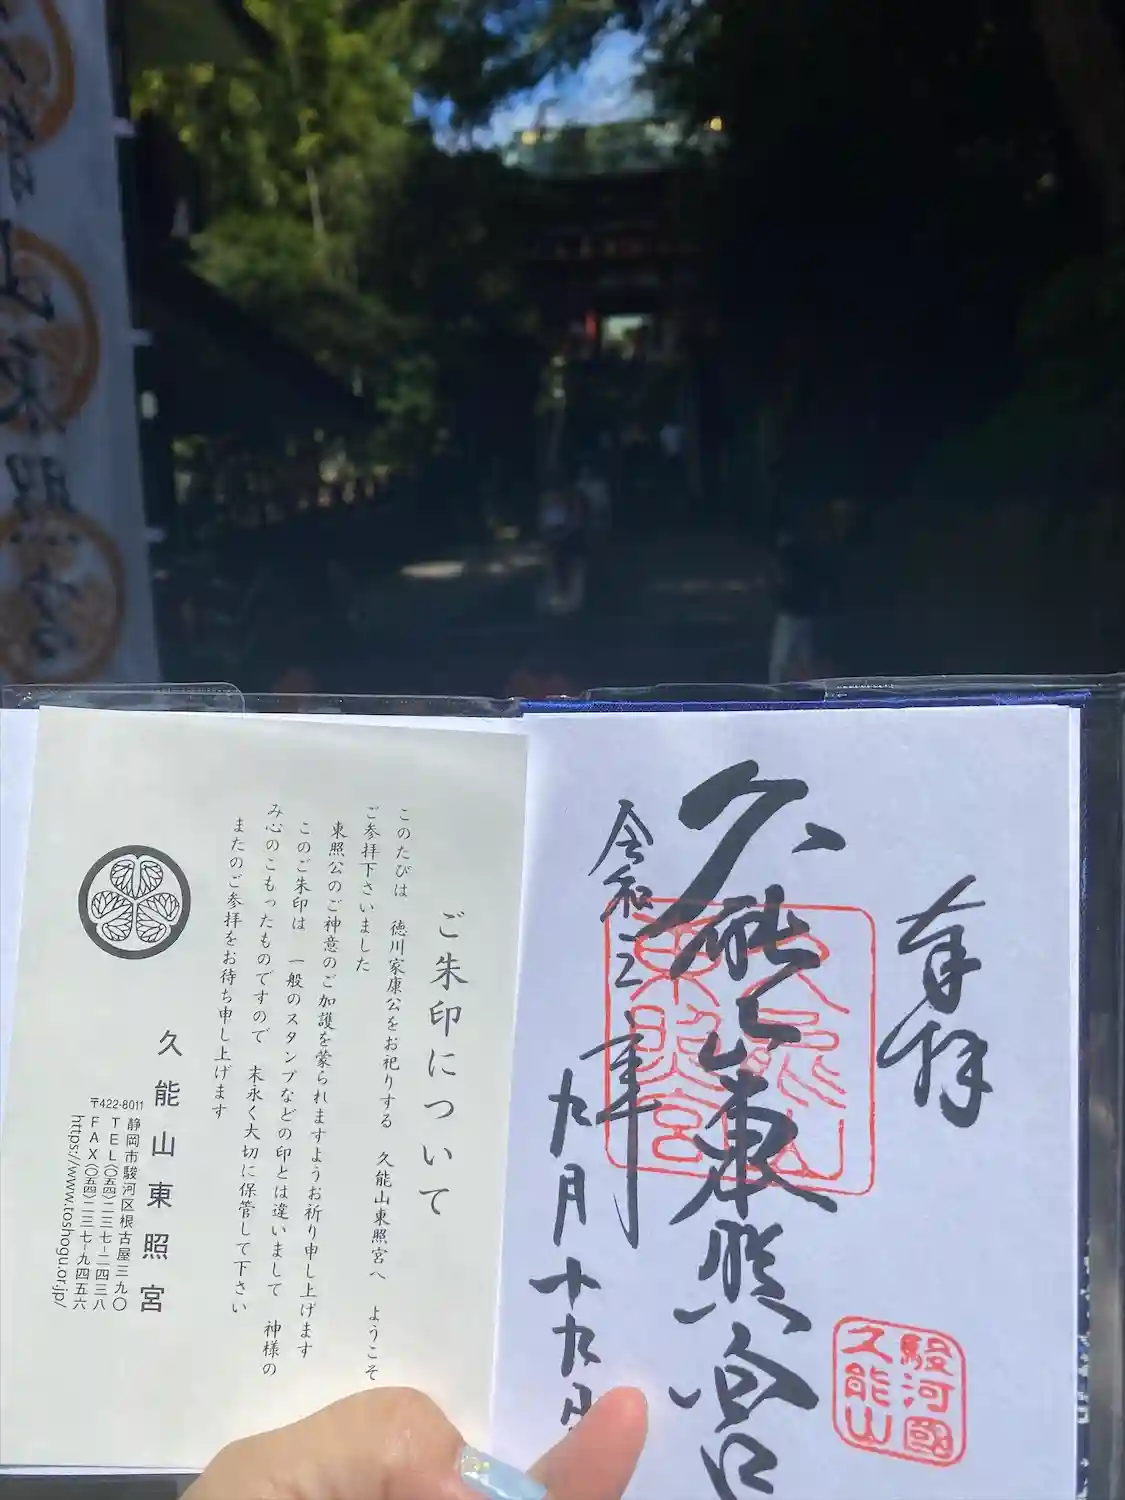 奉拝
久能山東照宮
令和二年
九月十九日
久能山
東照宮
駿河國
久能山
ご朱印について
このたびは　徳川家康公をお祀りする　久能山東照宮へ　ようこそ
ご参拝下さいました
東照公のご神意のご加護を蒙られますようお祈り申し上げます
このご朱印は　一般のスタンプなどの印とは違いまして　神様の
み心のこもったものですので　末永く大切に保管して下さい
またのご参拝をお待ち申し上げます
久能山東照宮
〒422-8011
静岡市駿河区根古屋三九〇
TEL(〇五四)二三七-二四三八
FAX(〇五四)二三七-九四五六
https://www.toshogu.or.jp/